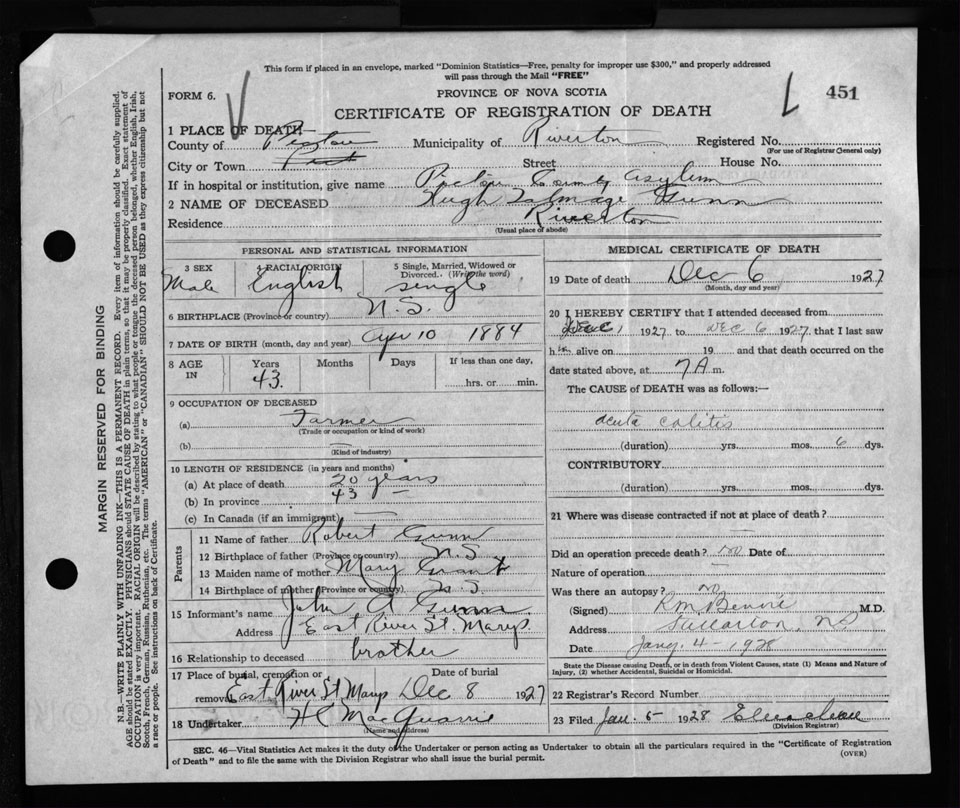 This form if placed in an envelope, marked "Dominion Statistics—Free, penalty for improper use $300," and properly addressed
will pass through the Mail "FREE"
FORM 6.
PROVINCE OF NOVA SCOTIA
451
CERTIFICATE OF REGISTRATION OF DEATH
1 PLACE OF DEATH—
County of Pictou Municipality of Riverton Registered No.
(For use of Registrar General only)
City or Town Street House No.
If in hospital or institution, give name Pictou County Asylum
2 NAME OF DECEASED Hugh Talmage Gunn
Residence Riverton
(Usual place of abode)
PERSONAL AND STATISTICAL INFORMATION
3 SEX 4 RACIAL ORIGIN 5 Single, Married, Widowed or Divorced. (Write the word)
Male English single
6 BIRTHPLACE (Province or country) N.S.
7 DATE OF BIRTH (month, day and year) Apr 10 1884
8 AGE IN Years Months Days If less than one day,
43. hrs. or min.
9 OCCUPATION OF DECEASED
(a) Farmer
(Trade or occupation or kind of work)
(b)
(Kind of industry)
10 LENGTH OF RESIDENCE (in years and months)
(a) At place of death 20 years
(b) In province 43 —
(c) In Canada (if an immigrant) —
Parents
11 Name of father Robert Gunn
12 Birthplace of father (Province or country) N.S
13 Maiden name of mother Mary Grant
14 Birthplace of mother (Province or country) N.S
15 Informant's name John A Gunn
Address East River St. Marys.
16 Relationship to deceased brother
17 Place of burial, cremation or removal Date of burial
East River St Marys Dec 8 1927
18 Undertaker H C MacQuarrie
(Name and address)
MEDICAL CERTIFICATE OF DEATH
19 Date of death Dec 6 1927
(Month, day and year)
20 I HEREBY CERTIFY that I attended deceased from
Dec 1 1927 to Dec 6 1927, that I last saw
him alive on 19 and that death occurred on the
date stated above, at 7 A m.
The CAUSE of DEATH was as follows:—
acute colitis
(duration) yrs. mos. 6 dys.
CONTRIBUTORY
(duration) yrs. mos. dys.
21 Where was disease contracted if not at place of death?
—
Did an operation precede death? no Date of
Nature of operation —
Was there an autopsy? no
(Signed) M.D.
Address Stellarton, NS
Date Jany 4 - 1928
State the Disease causing Death, or in death from Violent Causes, state (1) Means and Nature of
Injury, (2) whether Accidental, Suicidal or Homicidal.
22 Registrar's Record Number
23 Filed Jan. 5 1928
(Division Registrar)
SEC. 46—Vital Statistics Act makes it the duty of the Undertaker or person acting as Undertaker to obtain all the particulars required in the "Certificate of Registration
of Death" and to file the same with the Division Registrar who shall issue the burial permit.
(OVER)
MARGIN RESERVED FOR BINDING
N.B.—WRITE PLAINLY WITH UNFADING INK—THIS IS A PERMANENT RECORD. Every item of information should be carefully supplied.
AGE should be stated EXACTLY. PHYSICIANS should STATE CAUSE OF DEATH in plain terms, so that it may be properly classified. Exact statement of
OCCUPATION is very important. RACIAL ORIGIN will be described by stating to what people or tongue the deceased person belonged, whether English, Irish,
Scotch, French, German, Russian, Ruthenian, etc. The terms "AMERICAN" or "CANADIAN" SHOULD NOT BE USED as they express citizenship but not
a race or people. See instructions on back of Certificate.